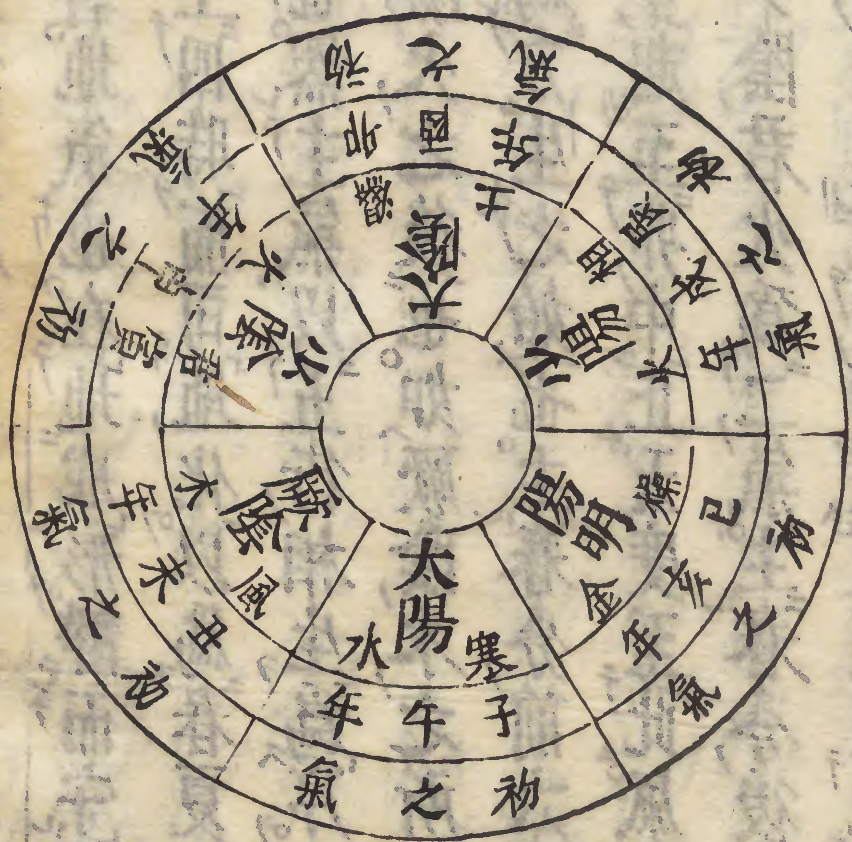 太陽
寒水
子午年
初之氣
厥陰
風木
丑未年
初之氣
少陰
君火
寅申年
初之氣
太陰
濕土
卯酉年
初之氣
少陽
相火
辰戌年
初之氣
陽明
燥金
巳亥年
初之氣